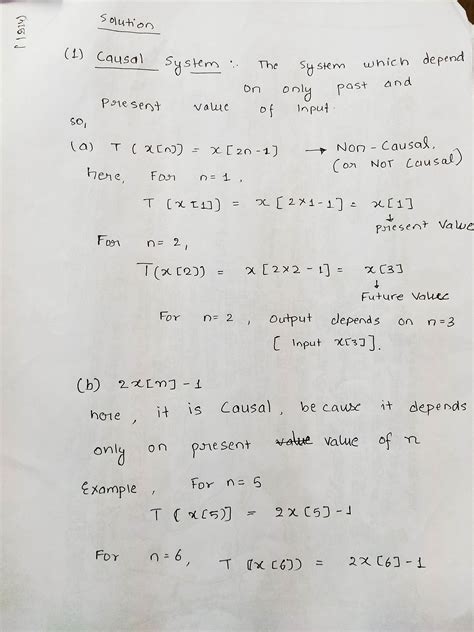 Solution
(1) Causal System :- The System which depend
on only past and
Present value of Input.
so,
(a) T(x[n]) = x[2n-1] → Non-Causal.
(or NOT Causal)
here, For n=1,
T(x[1]) = x[2×1-1] = x[1]
↓
present Value
For n=2,
T(x[2]) = x[2×2-1] = x[3]
↓
Future Value
For n=2, Output depends on n=3
[Input x[3]].
(b) 2x[n]-1
here, it is Causal, because it depends
only on present value value of n
Example, For n=5
T(x[5)] = 2x[5]-1
For n=6, T([x[6]) = 2x[6]-1